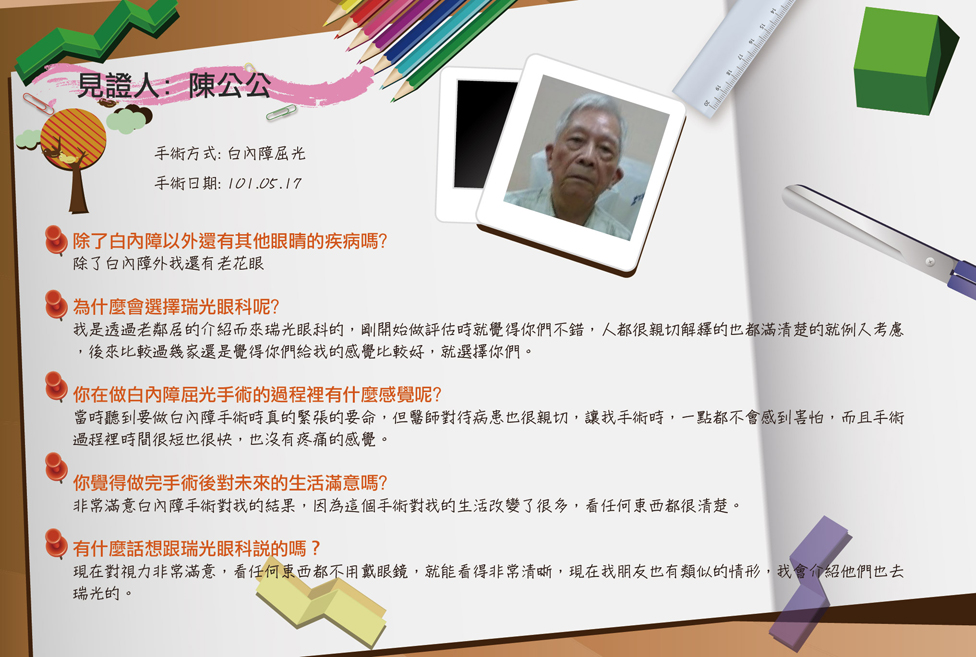 見證人: 陳公公
手術方式: 白內障屈光
手術日期: 101.05.17
除了白內障以外還有其他眼睛的疾病嗎?
除了白內障外我還有老花眼
為什麼會選擇瑞光眼科呢?
我是透過老鄰居的介紹而來瑞光眼科的，剛開始做評估時就覺得你們不錯，人都很親切解釋的也都滿清楚的就例入考慮
，後來比較過幾家還是覺得你們給我的感覺比較好，就選擇你們。
你在做白內障屈光手術的過程裡有什麼感覺呢?
當時聽到要做白內障手術時真的緊張的要命，但醫師對待病患也很親切，讓我手術時，一點都不會感到害怕，而且手術
過程裡時間很短也很快，也沒有疼痛的感覺。
你覺得做完手術後對未來的生活滿意嗎?
非常滿意白內障手術對我的結果，因為這個手術對我的生活改變了很多，看任何東西都很清楚。
有什麼話想跟瑞光眼科説的嗎？
現在對視力非常滿意，看任何東西都不用戴眼鏡，就能看得非常清晰，現在我朋友也有類似的情形，我會介紹他們也去
瑞光的。